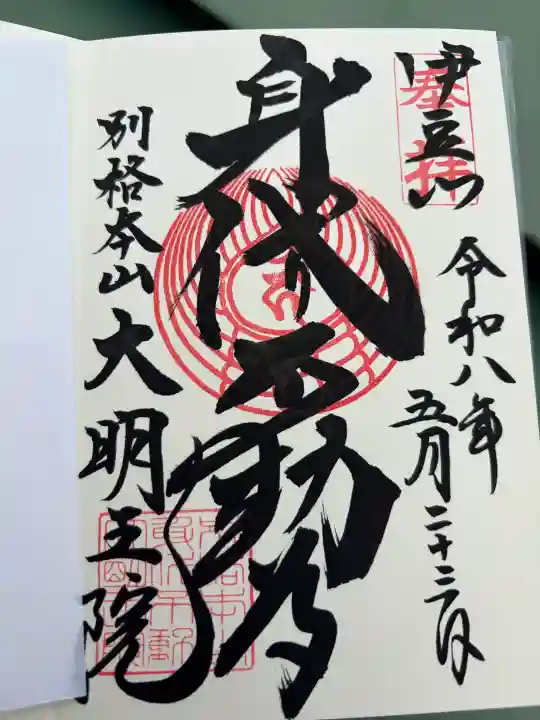 奉拝
伊豆山
令和八年
五月二十三日
身代り不動尊
別格本山
大明王院